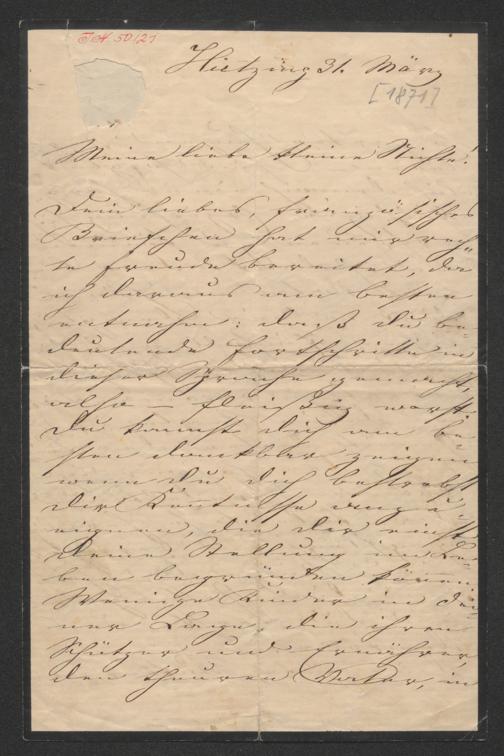 JA 50/21
Hietzing 31. März
[1871]
Meine liebe kleine Nichte!
Dein liebes, französisches
Briefchen hat mir rech-
te Freude bereitet, da
ich daraus am besten
entnahm: daß du be-
deutende Fortschritte in
dieser Sprache gemacht,
also – fleißig warst.
Du kannst dich am be-
sten dankbar zeigen
wenn du dich bestrebst
dir Kentnisse anzu-
eignen, die dir einst
deine Stellung im Le-
ben begründen können.
Wenige Kinder in dei-
ner Lage, die ihren
Schützer und Ernährer,
den theuren Vater, in